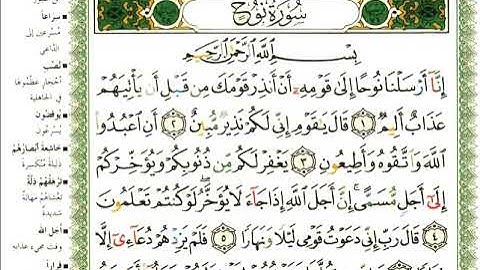 سُورَةُ نُوحٍ
بِسْمِ ٱللَّهِ ٱلرَّحْمَٰنِ ٱلرَّحِيمِ
إِنَّآ أَرْسَلْنَا نُوحًا إِلَىٰ قَوْمِهِۦٓ أَنْ أَنذِرْ قَوْمَكَ مِن قَبْلِ أَن يَأْتِيَهُمْ
عَذَابٌ أَلِيمٌ ١ قَالَ يَٰقَوْمِ إِنِّى لَكُمْ نَذِيرٌ مُّبِينٌ ٢ أَنِ ٱعْبُدُوا۟
ٱللَّهَ وَٱتَّقُوهُ وَأَطِيعُونِ ٣ يَغْفِرْ لَكُم مِّن ذُنُوبِكُمْ وَيُؤَخِّرْكُمْ
إِلَىٰٓ أَجَلٍ مُّسَمًّى إِنَّ أَجَلَ ٱللَّهِ إِذَا جَآءَ لَا يُؤَخَّرُ لَوْ كُنتُمْ تَعْلَمُونَ
٤ قَالَ رَبِّ إِنِّى دَعَوْتُ قَوْمِى لَيْلًا وَنَهَارًا ٥ فَلَمْ يَزِدْهُمْ دُعَآءِىٓ إِلَّا
سِرَاعًا
مُسْرِعين إلى
الدَّاعِي
نُصُبٍ
أحْجَارٍ عَظَّمُوهَا
في الجاهلية
يُوفِضُونَ
يُسْرِعُونَ
خَاشِعَةً أَبْصَارُهُمْ
ذَلِيلَةً مُنْكَسِرَةً
تَرْهَقُهُمْ ذِلَّةٌ
تَغْشَاهُمْ مَهَانَةٌ
شديدةٌ
أَجَلَ اللهِ
وقت مجيء عذابه
فِرَارًا